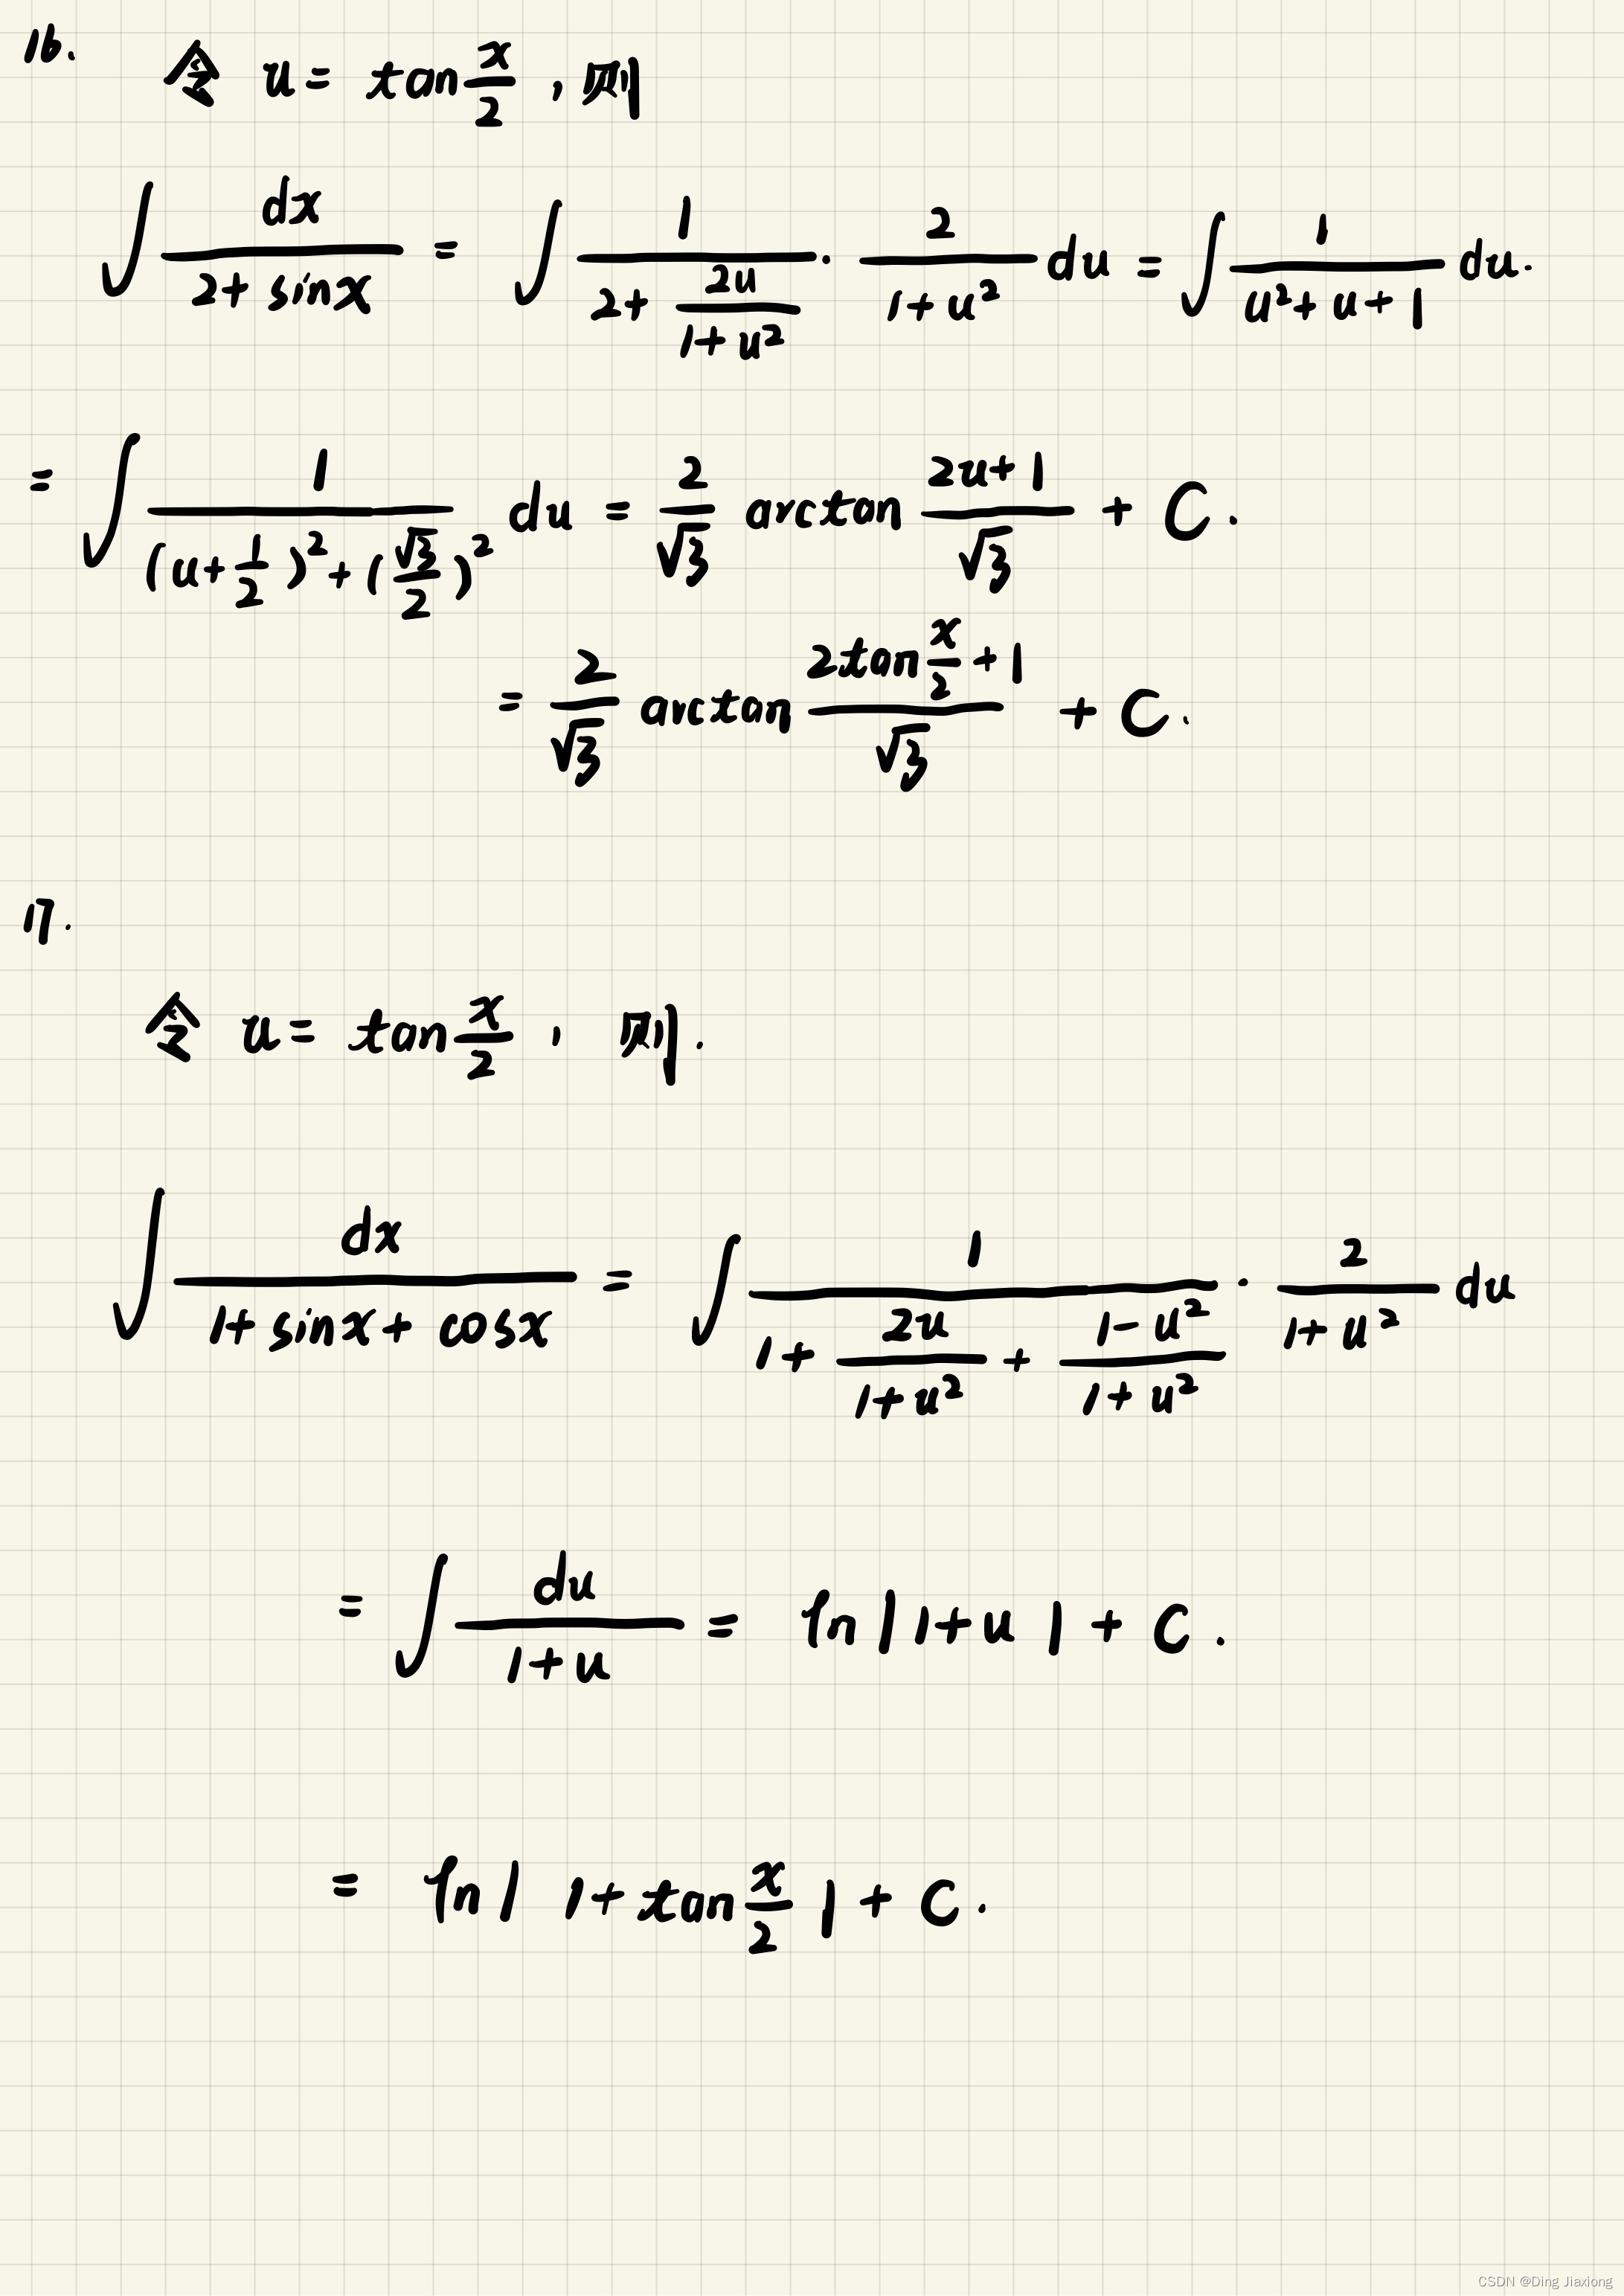 16.
令 u = tan x/2 , 则
∫ dx/(2 + sinx) = ∫ 1/(2 + 2u/(1+u²)) · 2/(1+u²) du = ∫ 1/(u² + u + 1) du.
= ∫ 1/((u + 1/2)² + (√3/2)²) du = 2/√3 arctan (2u+1)/√3 + C.
= 2/√3 arctan (2tan x/2 + 1)/√3 + C.
17.
令 u = tan x/2 , 则.
∫ dx/(1 + sinx + cosx) = ∫ 1/(1 + 2u/(1+u²) + (1-u²)/(1+u²)) · 2/(1+u²) du
= ∫ du/(1+u) = ln|1+u| + C.
= ln|1 + tan x/2| + C.
CSDN @Ding Jiaxiong